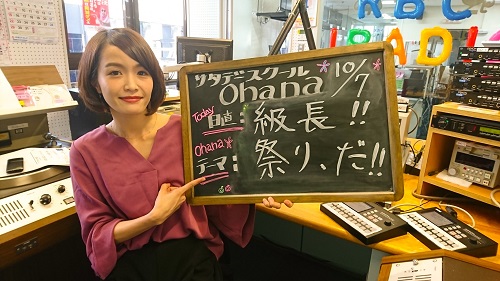 RBC
RADI
サタデースクール
Ohana 10/7
Today
日直: 級長!!
Ohana
テーマ: 祭り、だ!!